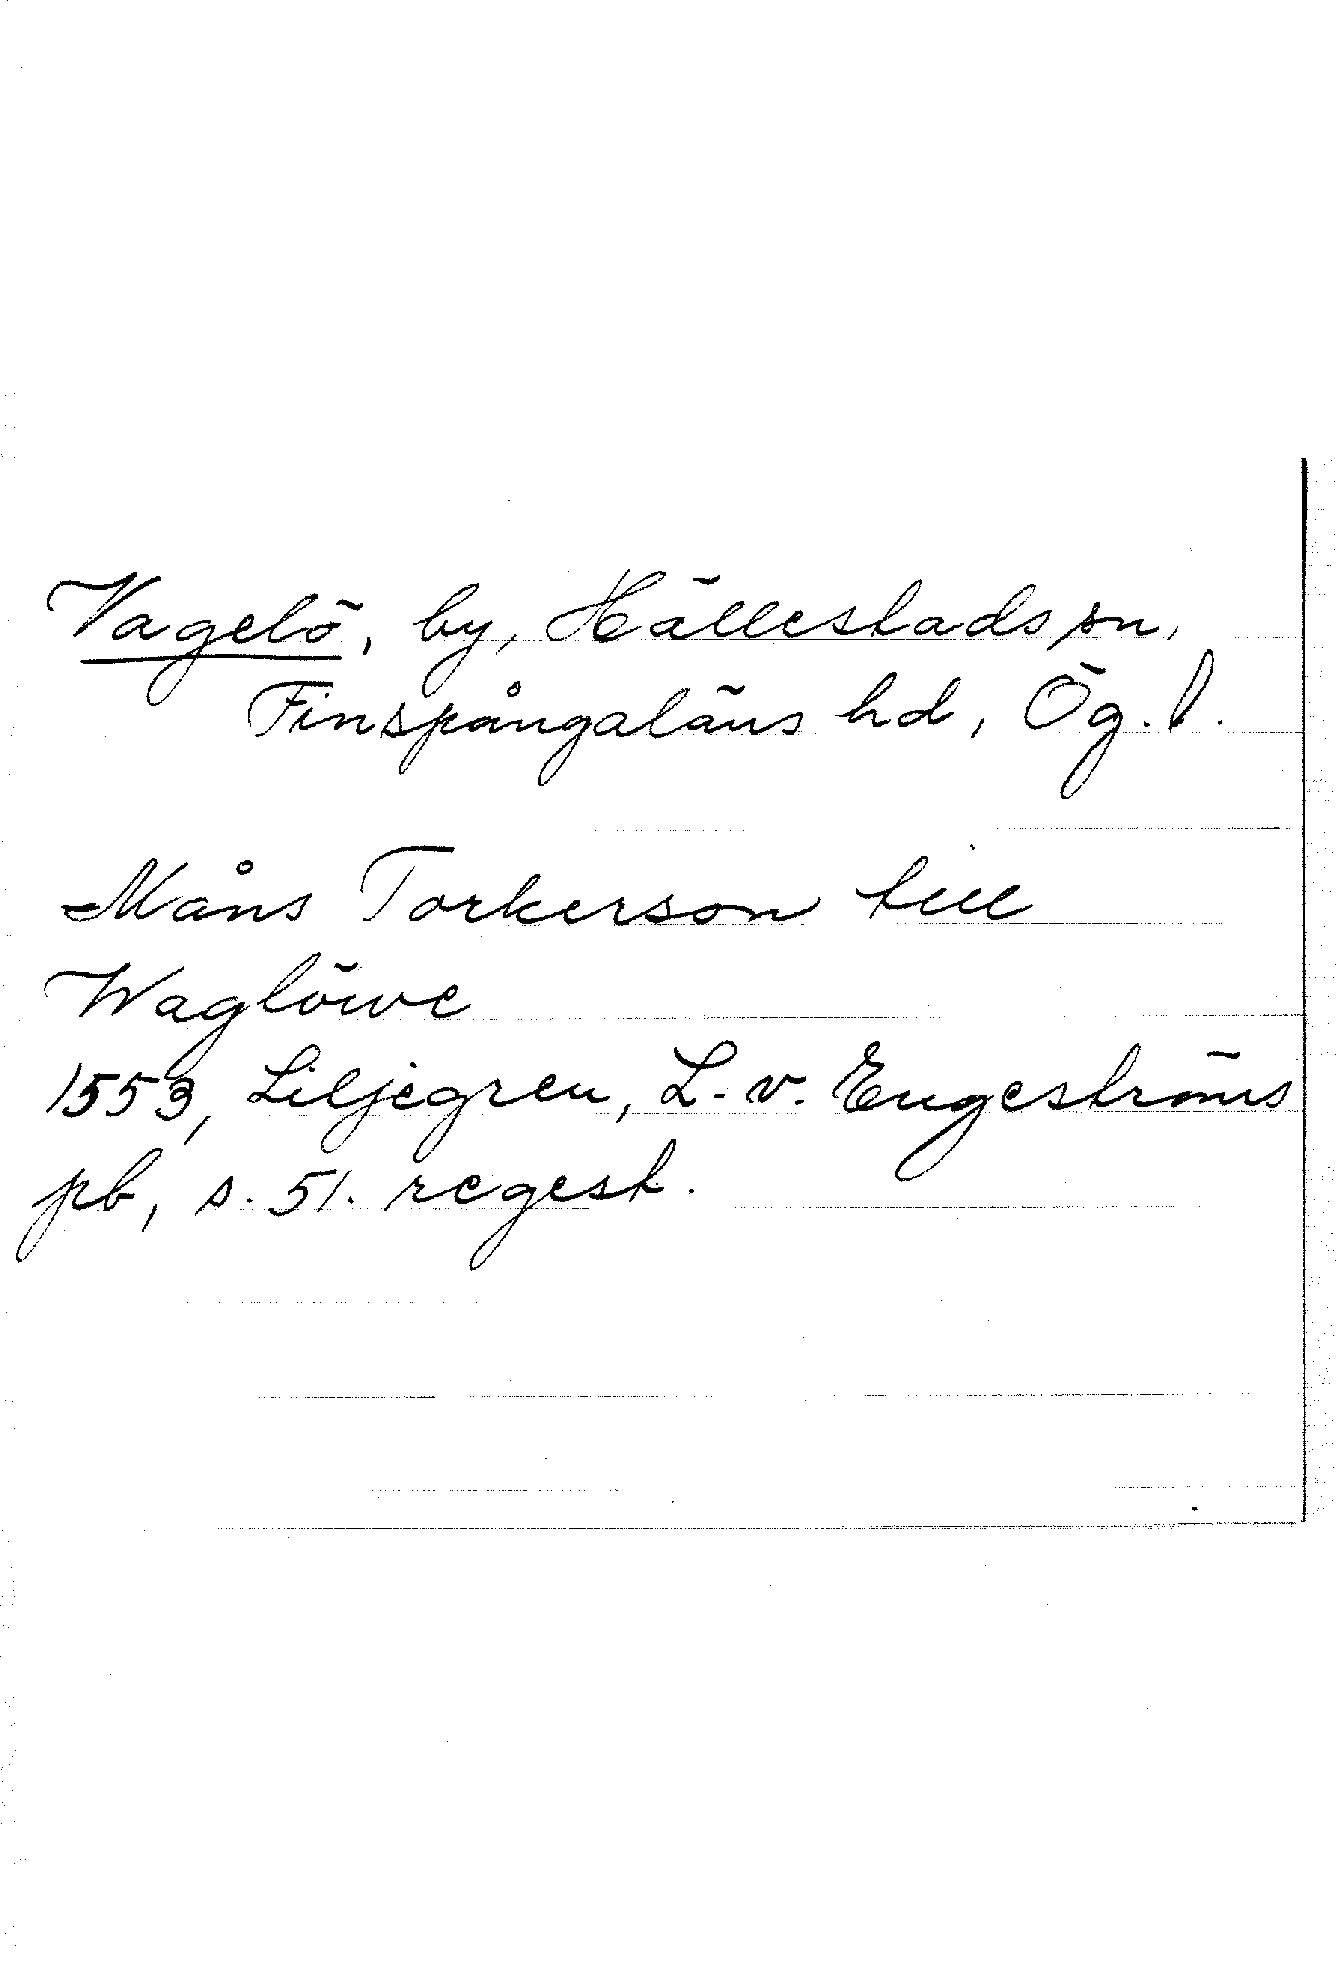 Vagelö, by, Hällestads sn,
Finspångaläns hd, Ög. l.
Måns Torkerson till
Waglöwe
1553, Liljegren, L. v. Engeströms
pb, s. 51. regest.